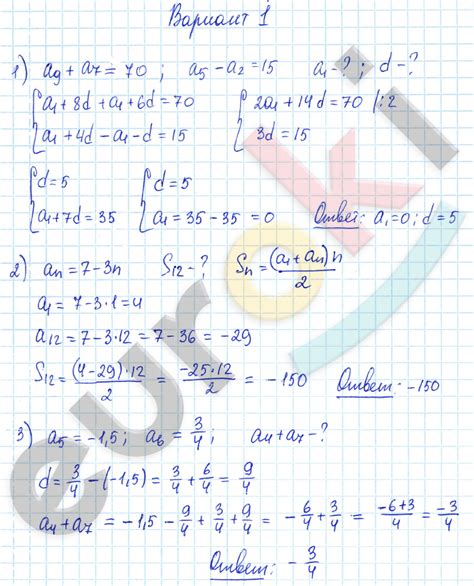 Вариант 1
1) a₉ + a₇ = 70 ; a₅ - a₂ = 15 a₁ - ? ; d - ?
{a₁ + 8d + a₁ + 6d = 70 {2a₁ + 14d = 70 /:2
a₁ + 4d - a₁ - d = 15 3d = 15
{d = 5 {d = 5
a₁ + 7d = 35 a₁ = 35 - 35 = 0 Ответ: a₁ = 0 ; d = 5
2) aₙ = 7 - 3n S₁₂ - ? Sₙ = (a₁ + aₙ)n / 2
a₁ = 7 - 3·1 = 4
a₁₂ = 7 - 3·12 = 7 - 36 = -29
S₁₂ = (4 - 29)·12 / 2 = -25·12 / 2 = -150 Ответ: -150
3) a₅ = -1,5 ; a₆ = 3/4 ; a₄ + a₇ - ?
d = 3/4 - (-1,5) = 3/4 + 6/4 = 9/4
a₄ + a₇ = -1,5 - 9/4 + 3/4 + 9/4 = -6/4 + 3/4 = -6+3 / 4 = -3/4
Ответ: - 3/4
euroki